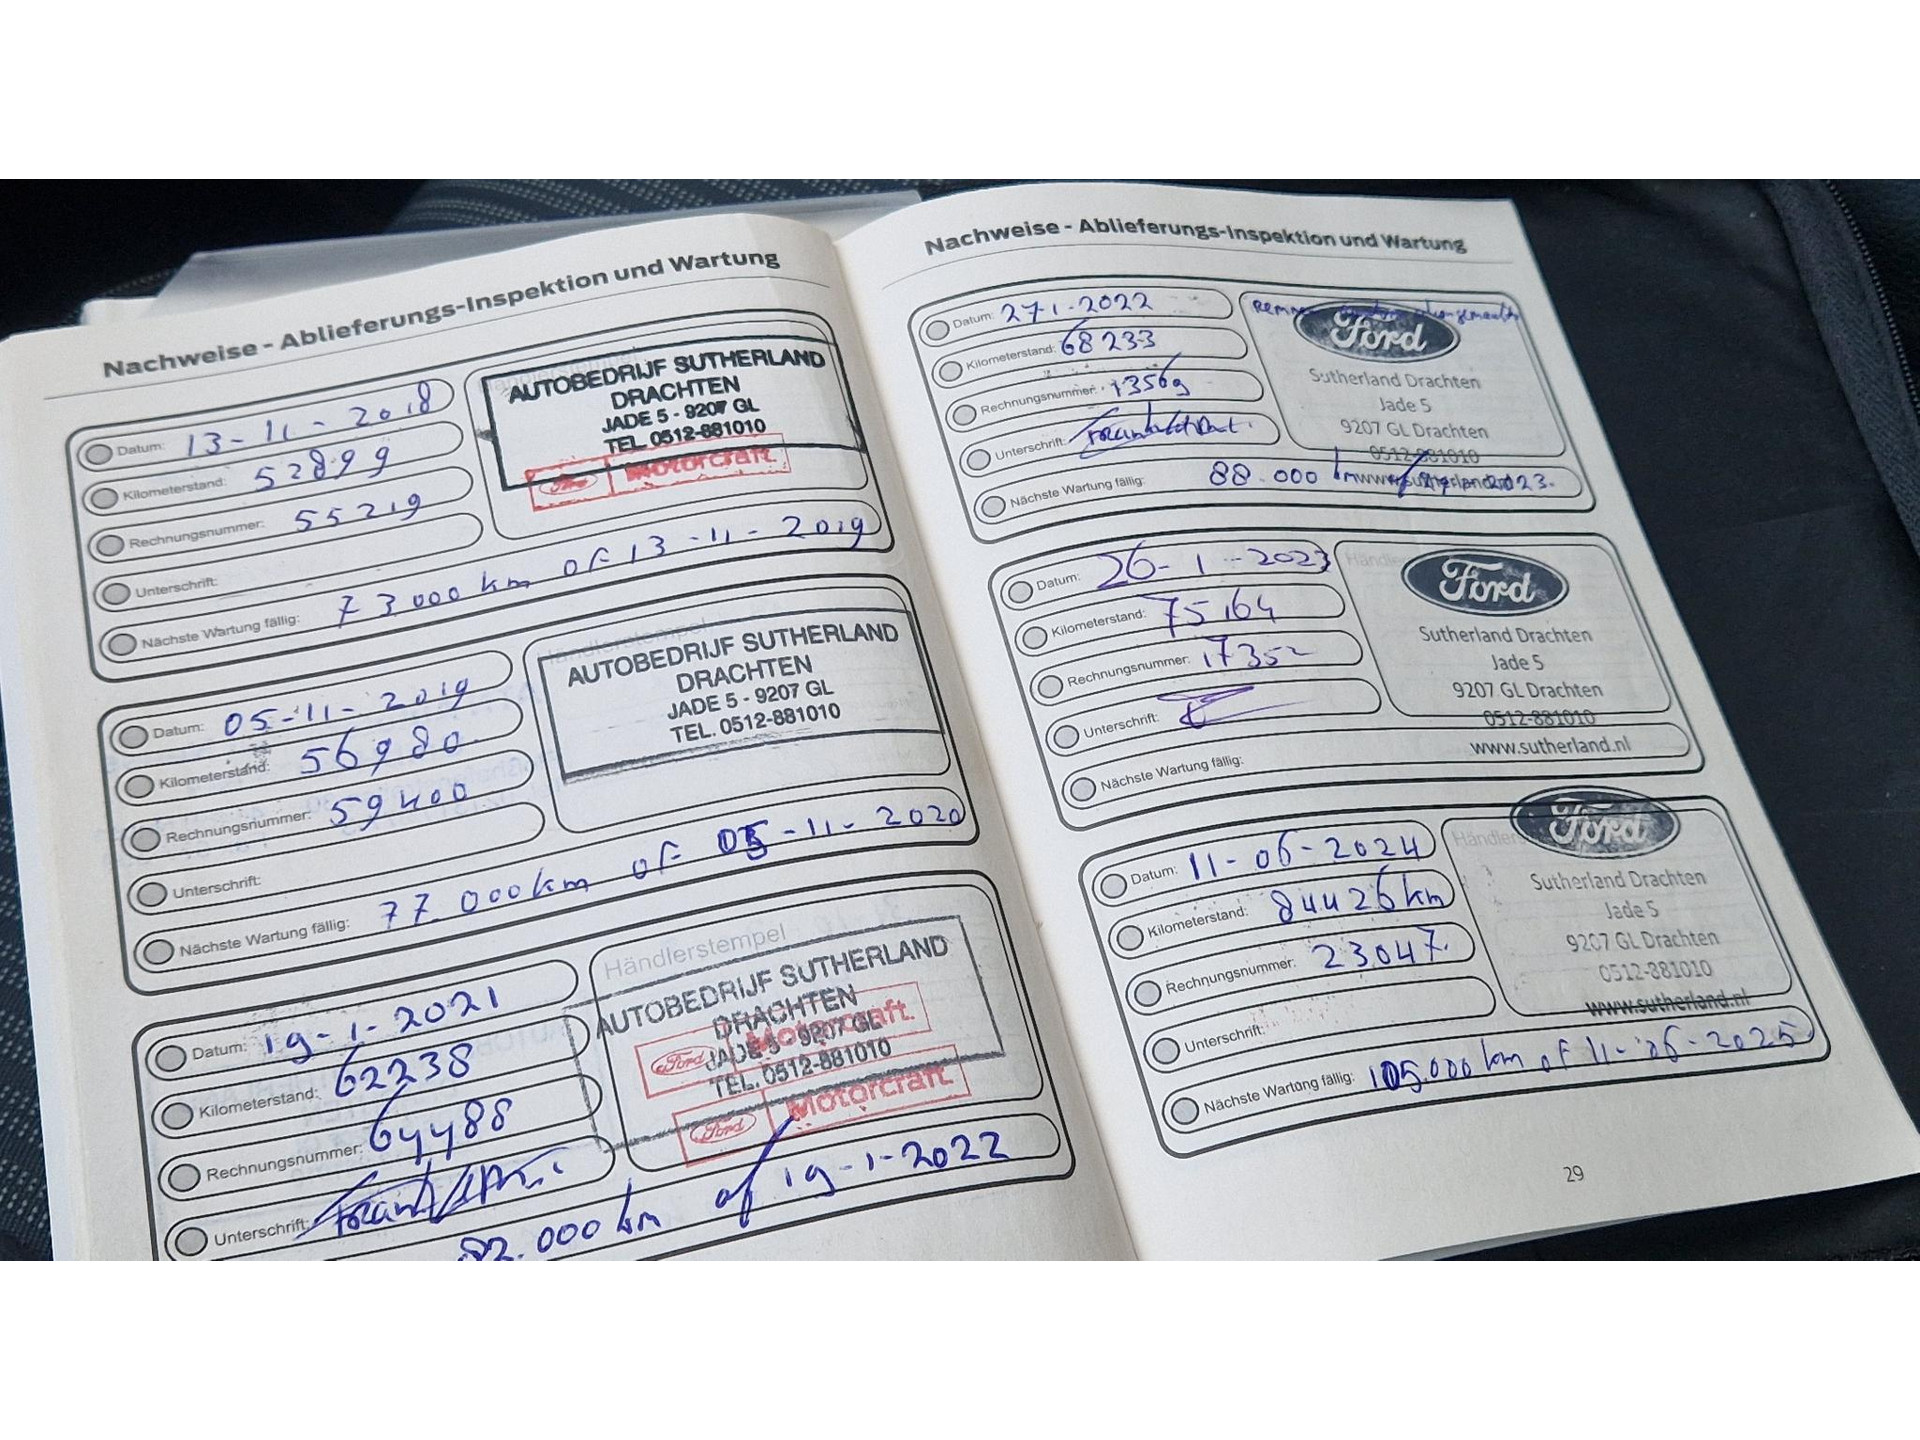 Nachweise - Ablieferungs-Inspektion und Wartung
Datum: 13-11-2018
Kilometerstand: 52899
Rechnungsnummer: 55219
Unterschrift:
Nächste Wartung fällig: 73000 km of 13-11-2019
AUTOBEDRIJF SUTHERLAND
DRACHTEN
JADE 5 - 9207 GL
TEL. 0512-881010
Ford Motorcraft.
Datum: 05-11-2019
Kilometerstand: 56980
Rechnungsnummer: 59400
Unterschrift:
Nächste Wartung fällig: 77.000 km of 05-11-2020
Händlerstempel
AUTOBEDRIJF SUTHERLAND
DRACHTEN
JADE 5 - 9207 GL
TEL. 0512-881010
Datum: 19-1-2021
Kilometerstand: 62238
Rechnungsnummer: 64488
Unterschrift:
82.000 km of 19-1-2022
Händlerstempel
AUTOBEDRIJF SUTHERLAND
DRACHTEN
JADE 5 - 9207 GL
TEL. 0512-881010
Ford Motorcraft.
Ford Motorcraft.
Nachweise - Ablieferungs-Inspektion und Wartung
Datum: 27-1-2022
Kilometerstand: 68233
Rechnungsnummer:
Unterschrift:
Nächste Wartung fällig: 88.000 km
Ford
Sutherland Drachten
Jade 5
9207 GL Drachten
0512-881010
Datum: 26-1-2023
Kilometerstand: 75164
Rechnungsnummer: 17352
Unterschrift:
Nächste Wartung fällig:
Ford
Sutherland Drachten
Jade 5
9207 GL Drachten
0512-881010
www.sutherland.nl
Datum: 11-06-2024
Kilometerstand: 84426 km
Rechnungsnummer: 23047.
Unterschrift:
Nächste Wartung fällig: 105.000 km of 11-06-2025
Ford
Sutherland Drachten
Jade 5
9207 GL Drachten
0512-881010
www.sutherland.nl
29